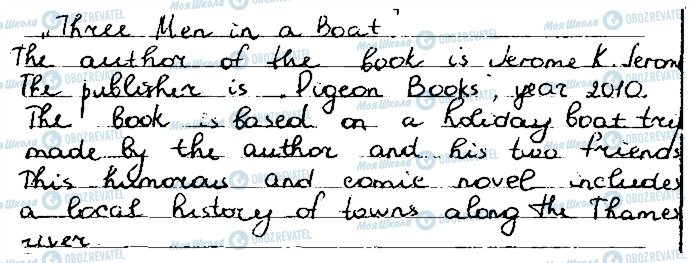 „Three Men in a Boat”
The author of the book is Jerome K. Jerom
The publisher is „Pigeon Books”, year 2010.
The book is based on a holiday boat tri
made by the author and his two friends
This humorous and comic novel includes
a local history of towns along the Thames
river